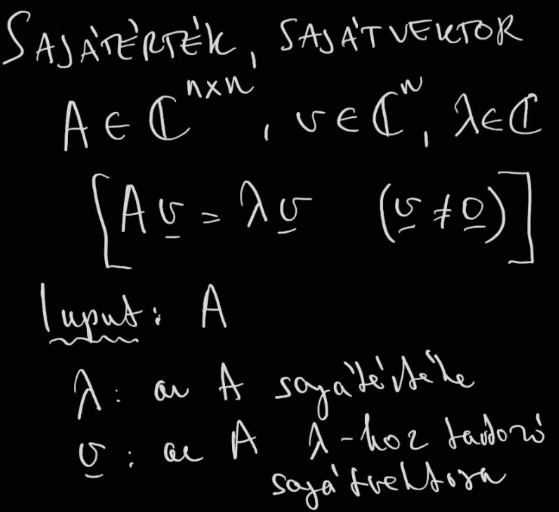 SAJÁTÉRTÉK, SAJÁTVEKTOR
A ∈ ℂⁿˣⁿ, v ∈ ℂⁿ, λ ∈ ℂ
[A v = λ v (v ≠ 0)]
Input: A
λ: az A sajátértéke
v: az A λ-hoz tartozó
sajátvektora